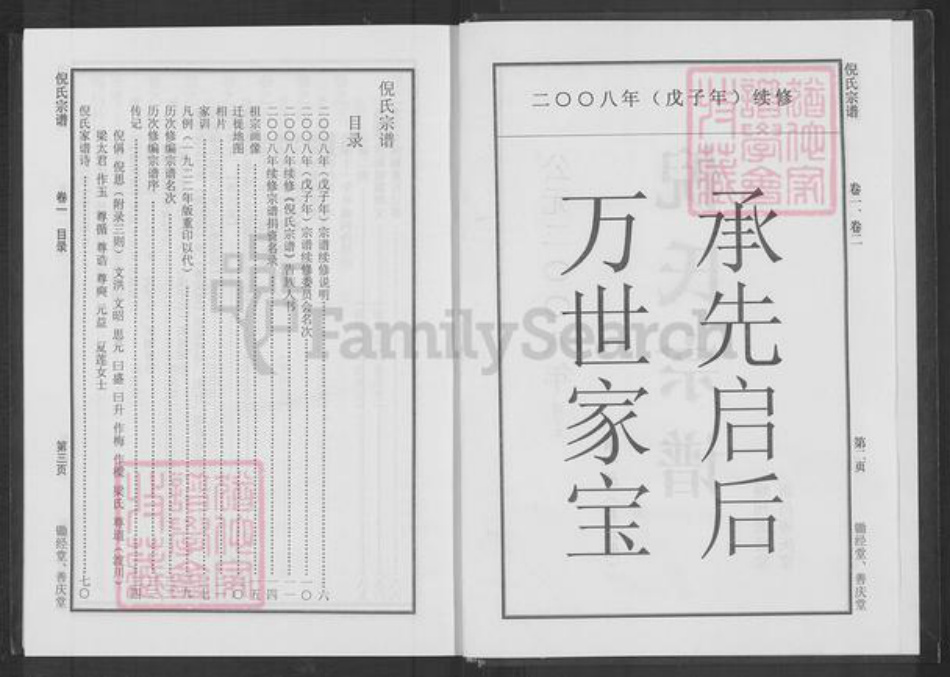 倪氏宗谱
卷一、卷二
第二页
锄经堂、善庆堂
二〇〇八年（戊子年）续修
承先启后
万世家宝
倪氏宗谱
目录
二〇〇八年（戊子年）宗谱续修说明……六
二〇〇八年（戊子年）宗谱续修委员会名次……一〇
二〇〇八年续修《倪氏宗谱》告族人书……一一
二〇〇八年续修宗谱捐资名录……一四
祖宗画像
迁徙地图
相片
家训
凡例（一九二二年版重印以代）
历次修编宗谱名次
历次修编宗谱序
传记
倪偁 倪思（附录三则） 文洪 文昭 思元 曰盛 曰升 作梅 梁氏
梁太君 作玉 尊循 尊诰 尊爽 元益 夏莲女士
倪氏家谱诗……七〇
倪氏宗谱
卷一 目录
第三页
锄经堂、善庆堂
FamilySearch